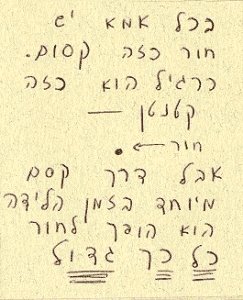 בכל אמא יש
חור כזה קסום.
כרגיל הוא כזה
קטנטן —
חור ←•
אבל דרך קסם
מיוחד בזמן הלידה
הוא הופך לחור
כל כך גדול